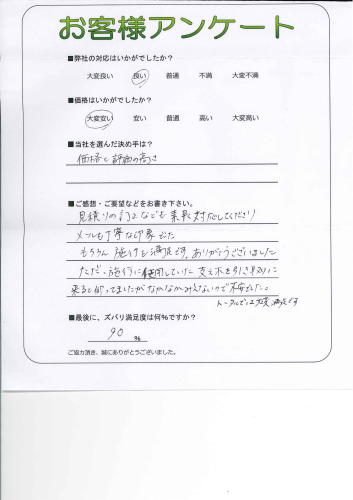 お客様アンケート
■弊社の対応はいかがでしたか？
大変良い 良い 普通 不満 大変不満
■価格はいかがですか？
大変安い 安い 普通 高い 大変高い
■当社を選んだ決め手は？
価格と評価の高さ
■ご感想・ご要望などをお書き下さい。
見積りの訂正なども素早く対応してくださり
メールも丁寧な印象でした
もちろん施行も満足です。ありがとうございました
ただ、施行に使用していた支え木を引き取りに
来ると仰ってましたがなかなかみえないので
トータルでは大変満足です
■最後に、ズバリ満足度は何%ですか？
90 %
ご協力頂き、誠にありがとうございました。